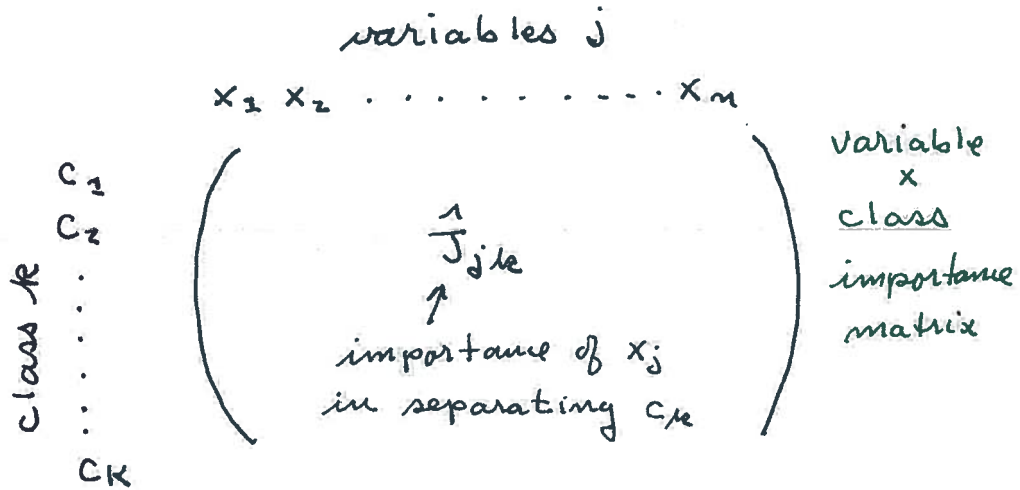 variables j
x₁ x₂ . . . . . . . . . . xₙ
c₁
c₂
.
.
.
.
c_K
class k
Ĵ_jk
↑
importance of x_j
in separating c_k
variable
x
class
importance
matrix